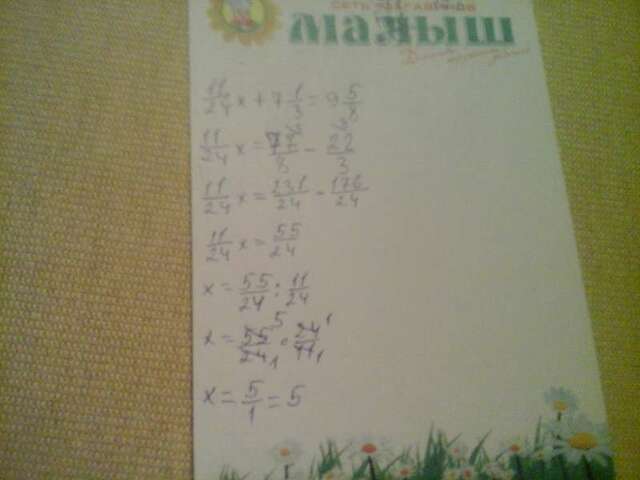 СЕТЬ МАГАЗИНОВ
МАЛЫШ
11/24 x + 7 1/3 = 9 5/8
11/24 x = 77/8 - 22/3
11/24 x = 231/24 - 176/24
11/24 x = 55/24
x = 55/24 : 11/24
x = 55/24 · 24/11
x = 5/1 = 5